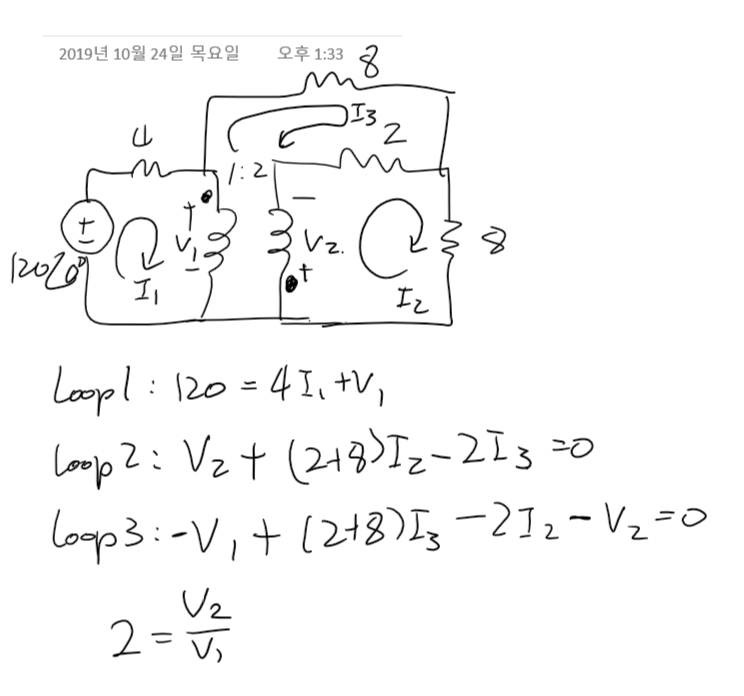 2019년 10월 24일 목요일 오후 1:33
8
I3
4 1:2 2
+ −
120∠0° + − I1 V1 − V2 + I2 8
Loop1: 120 = 4I₁+V₁
Loop2: V₂+(2+8)I₂−2I₃=0
Loop3: −V₁+(2+8)I₃−2I₂−V₂=0
2=V₂/V₁